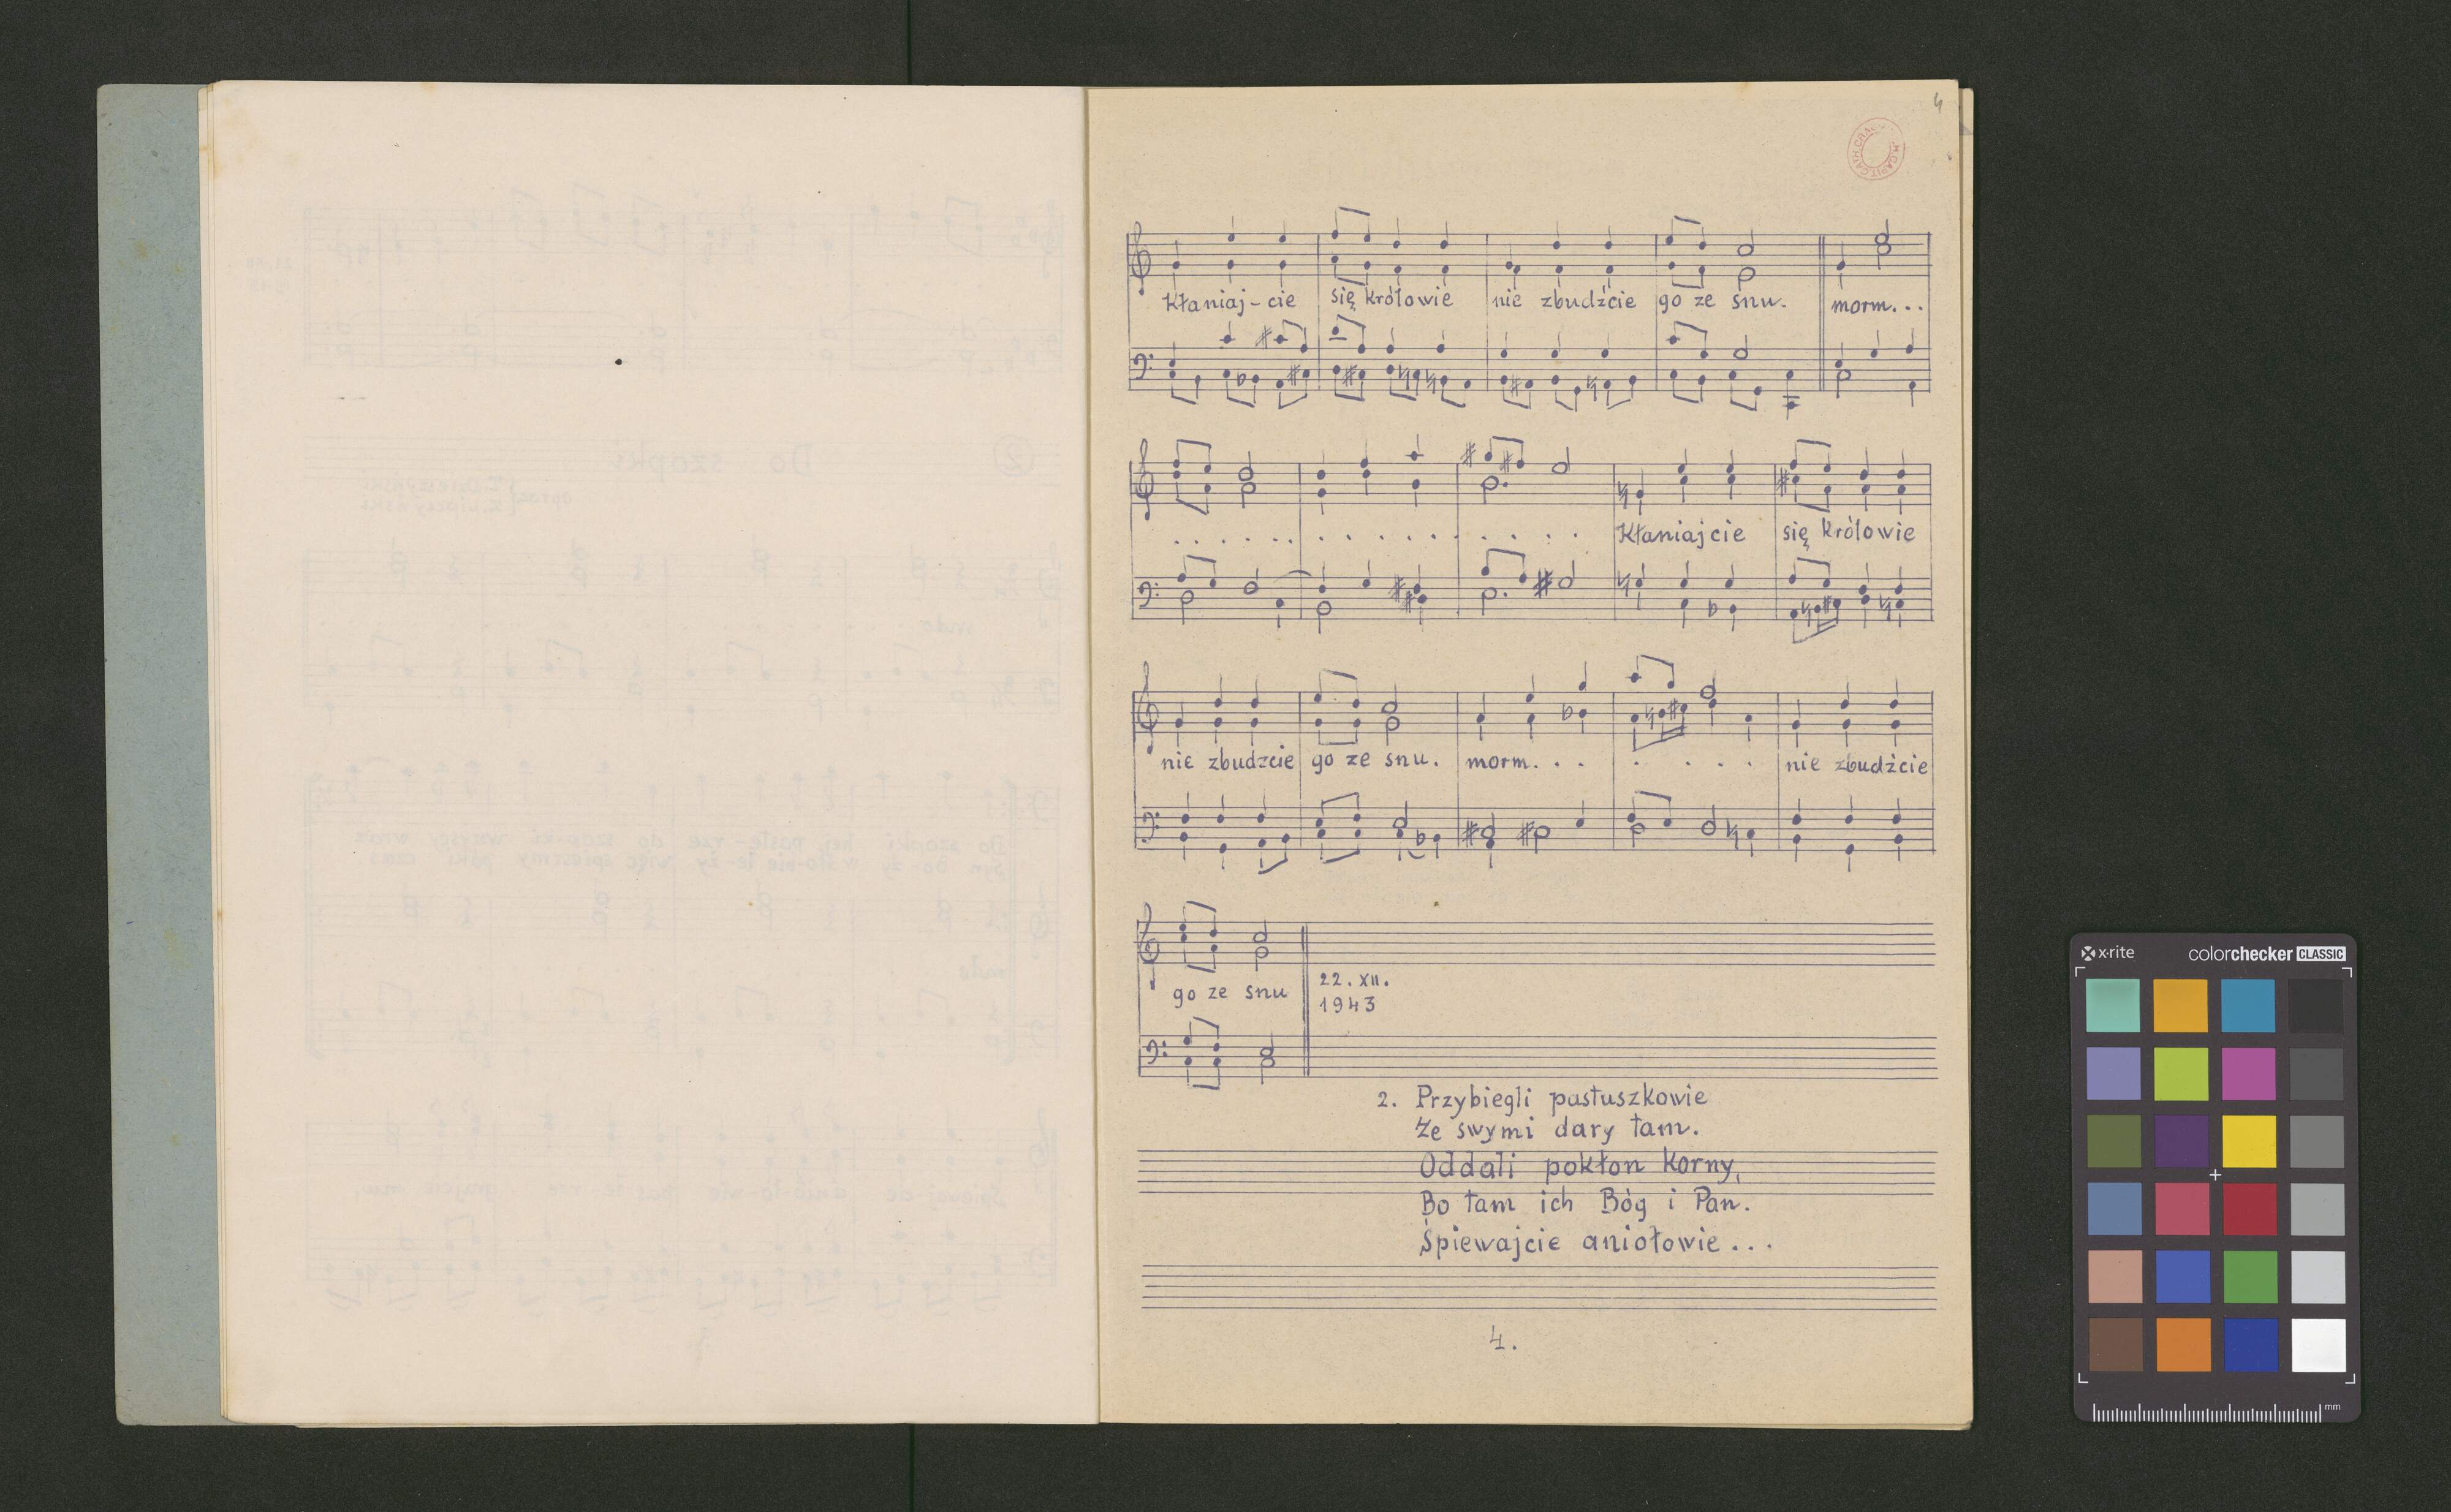 4
Kłaniaj-cie się królowie nie zbudźcie go ze snu. morm...
Kłaniajcie się królowie
nie zbudzcie go ze snu. morm... nie zbudźcie
go ze snu
22. XII.
1943
2. Przybiegli pastuszkowie
Ze swymi dary tam.
Oddali pokłon korny,
Bo tam ich Bóg i Pan.
Śpiewajcie aniołowie...
4.
② Do szopki
x-rite colorchecker CLASSIC
mm